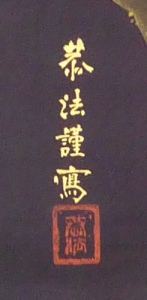 恭法謹寫